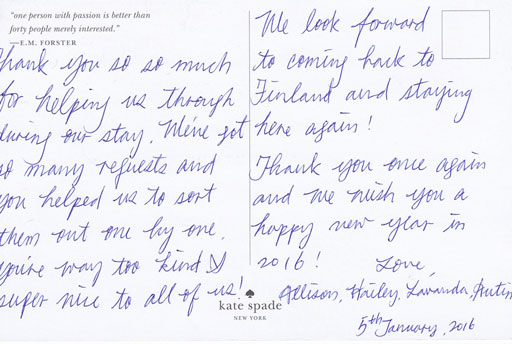 "one person with passion is better than
forty people merely interested."
—E.M. FORSTER
Thank you so so much
for helping us through
during our stay. We've got
so many requests and
you helped us to sort
them out one by one.
you're way too kind &
super nice to all of us!
We look forward
to coming back to
Finland and staying
here again!
Thank you once again
and we wish you a
happy new year in
2016!
Love,
Allison, Hailey, Lavanda,
5th January, 2016
kate spade
NEW YORK